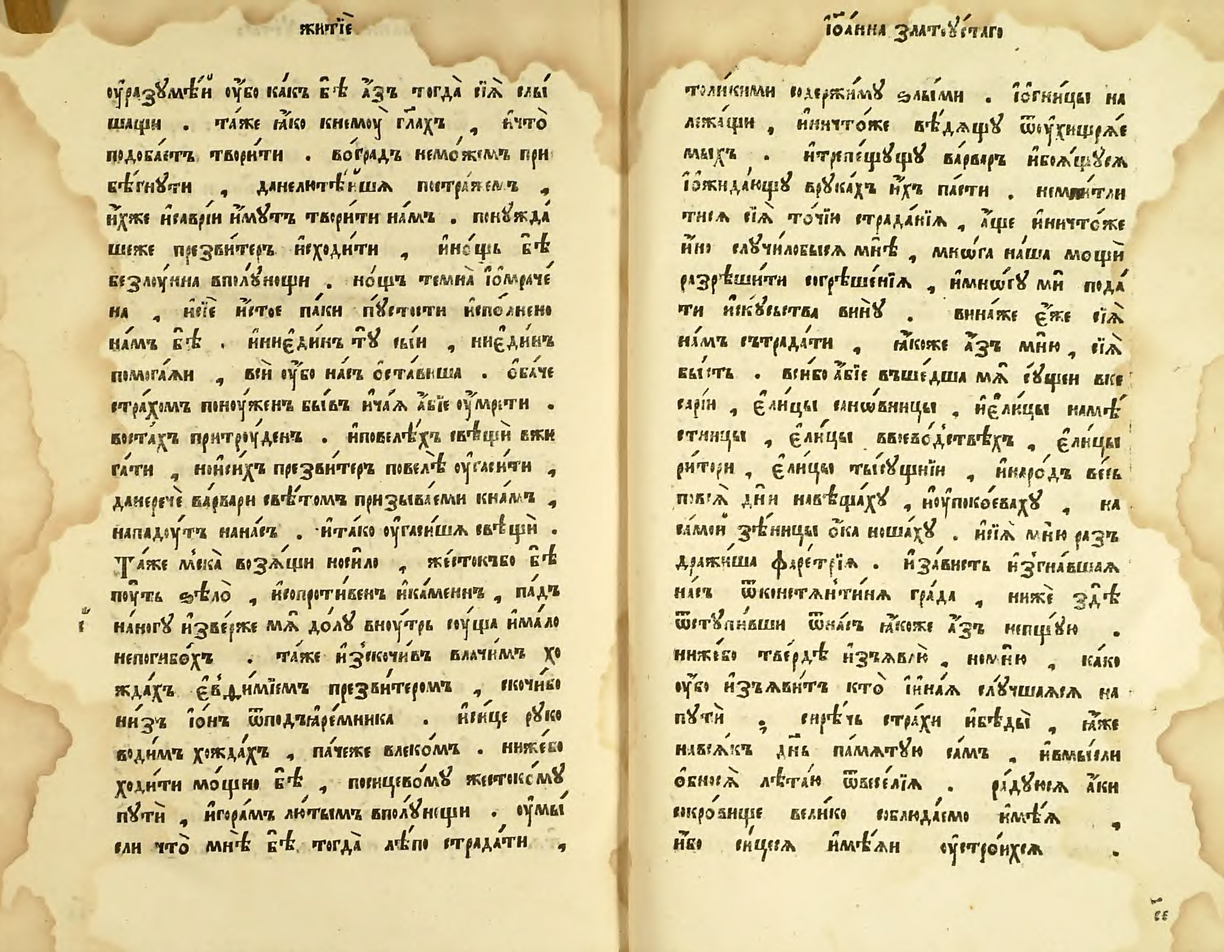 житїѐ
ᲂу҆разꙋмѣ́й ᲂу҆́бо ка́къ бѣ̀ а҆́зъ тогда̀ сїѧ̀ слы́
шащи . та́же ꙗ҆́ко кнемоу̀ гл҃ахъ , и҆что̀
подоба́етъ твори́ти . во́градъ немо́жемъ при
бѣ́гнути , данелютѣ́йшѧ постра́жемъ ,
и҆́хже и҆са́врїи и҆́мутъ твори́ти на́мъ . понужда́
шеже презви́теръ и҆сходи́ти , и҆но́щь бѣ̀
безлоу́нна вполꙋ́нощи . но́щъ темна̀ і҆ѻ҆мраче́
на , и҆сїѐ и҆́стое па́ки пꙋ́стости и҆спо́лнено
на́мъ бѣ̀ . и҆ниє҆ди́нъ тꙋ̀ сы́и , ниє҆ди́нъ
помога́ѧи , всѝ ᲂу҆́бо на́съ ѻ҆ста́виша . ѻ҆ба́че
стра́хомъ поноу́женъ бы́въ и҆ча́ѧ а҆́бїе ᲂу҆мрⷤе́ти .
воста́хъ притроу́денъ . и҆повелѣ́хъ свѣ́щи вжи
га́ти , но́и҆си́хъ презви́теръ повелѣ̀ ᲂу҆гаси́ти ,
данеречѐ ва́рвари свѣ́томъ призыва́еми кна́мъ ,
нападоу́тъ нана́съ . и҆та́ко ᲂу҆гаси́шѧ свѣ́щи .
Та́же мска̀ возѧ́щи носи́ло , же́стокъбо бѣ̀
поу́ть ѕѣло̀ , и҆сопроти́венъ и҆ка́мениъ , па́дъ
нано́гу и҆зве́рже мѧ̀ до́лу вноу́трь соу́ща и҆ма́ло
непогибо́хъ . та́же и҆зско́чивъ влачи́мъ хо
жда́хъ є҆в̾ди́мїемъ презви́теромъ , скочи́бо
ни́зъ і҆ѻ҆́нъ ѿподъꙗ҆ре́мника . и҆си́це руко
води́мъ хожда́хъ , па́чеже влеко́мъ . ниже́бо
ходи́ти мо́щно бѣ̀ , посицево́мꙋ жесто́комꙋ
пꙋтѝ , и҆гора́мъ лю́тымъ вполꙋ́нощи . ᲂу҆мы́
сли что̀ мнѣ̀ бѣ̀ тогда̀ лѣ́по страда́ти ,
і҆ѻ҆а́нна златꙋ́стаго
толи́кими содержи́мꙋ ѕлы́ми . і҆ѻ҆гни́цы на
лежа́щи , и҆ничто́же вѣ́дѧщꙋ ѿᲂу҆хищрѧ́е
мыхъ . и҆трепе́щꙋщꙋ ва́рваръ и҆боѧ́щꙋсѧ
і҆ѻ҆жида́ющꙋ врука́хъ и҆́хъ па́сти . немни́тли
тисѧ сїѧ̀ то́чїю страда́нїѧ , а҆́ще и҆ничто́же
и҆́но случи́лобысѧ мнѣ̀ , мнѡ́га на́ша мо́щи
разрѣши́ти согрѣше́нїѧ , и҆мнѡ́гꙋ мѝ пода́
ти и҆скꙋ́сьства винꙋ̀ . вина́же є҆́же сїѧ̀
на́мъ състрада́ти , ꙗ҆́коже а҆́зъ мню̀ , сїѧ̀
бы́сть . всѝбо а҆́бїе въше́дша мѧ̀ сꙋ́щеи вке
сарїи , є҆ли́цы санѡ́вницы , и҆є҆ли́цы намѣ́
стницы , є҆ли́цы ввоево́дствѣхъ , є҆ли́цы
ри́тори , є҆ли́цы ты́сꙋщнїи , и҆наро́дъ ве́сь
повсѧ̀ дн҃и навѣща́хꙋ , и҆ᲂу҆поко́еваху , на
са́мой зѣ́ницы ѻ҆́ка ноша́хꙋ . и҆сїѧ̀ мню̀ раз̾
дражи́ша фаре́трїѧ . и҆за́висть и҆згна́вшаѧ
на́съ ѿконстѧнти́нѧ гра́да , нижѐ здѣ̀
ѿстꙋпи́вши ѿна́съ ꙗ҆́коже а҆́зъ непщꙋ́ю .
ниже́бо тве́рдѣ и҆зъѧвлю̀ , номню̀ , ка́ко
ᲂу҆́бо и҆зъѧви́тъ кто̀ і҆и҆на́ѧ слꙋ́чшаѧсѧ на
пꙋтѝ ; си́рѣчь стра́хи и҆бѣды̀ , ꙗ҆́же
навсѧ́къ дн҃ь па́мѧтꙋю са́мъ , и҆вмы́сли
ѻ҆бносѧ̀ лѣта́ю ѿвесе́лїѧ . ра́дꙋюсѧ а҆́ки
сокро́вище вели́ко соблюда́емо и҆мѣ́ѧ ,
и҆́бо си́цесѧ и҆мѣ́ѧи ᲂу҆стро́ихсѧ .